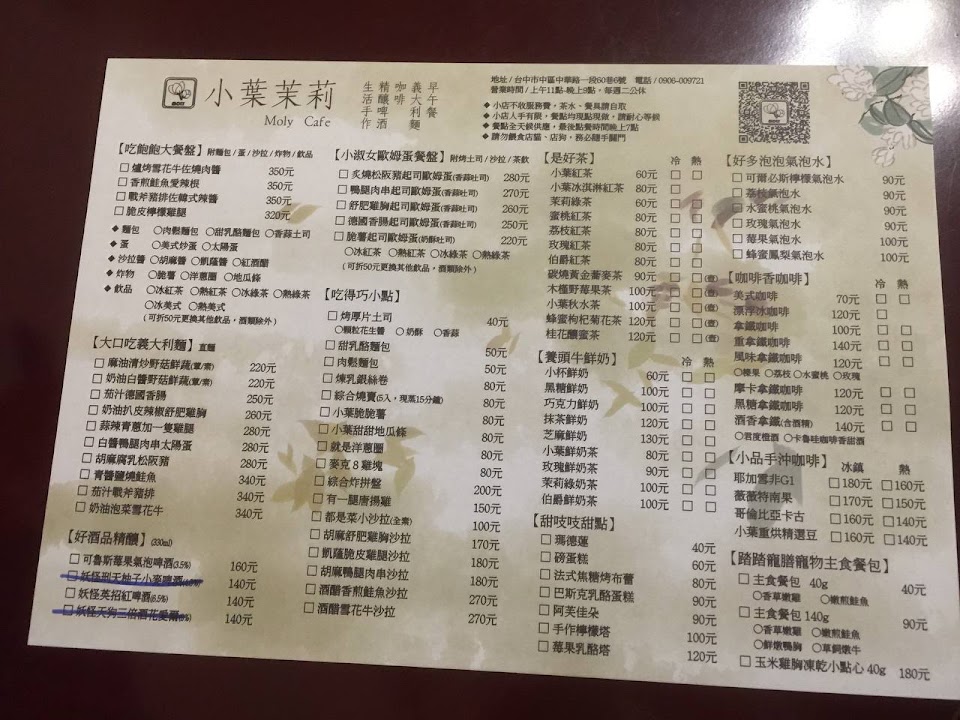 小葉茉莉
Moly Cafe
早午餐
義大利麵
咖啡
精釀啤酒
生活手作
地址 / 台中市中區中華路一段60巷6號 電話 / 0906-009721
營業時間 / 上午11點-晚上8點，每週二公休
◆ 小店不收服務費，茶水、餐具請自取
◆ 小店人手有限，餐點均現點現做，請耐心等候
◆ 餐點全天候供應，最後點餐時間晚上7點
◆ 請勿餵食店貓、店狗，務必隨手關門
【吃飽飽大餐盤】附麵包 / 蛋 / 沙拉 / 炸物 / 飲品
□ 爐烤雪花牛佐燒肉醬 350元
□ 香煎鮭魚愛辣根 350元
□ 戰斧豬排佐韓式辣醬 350元
□ 脆皮檸檬雞腿 320元
◆ 麵包 ○肉鬆麵包 ○甜乳酪麵包 ○香蒜土司
◆ 蛋 ○美式炒蛋 ○太陽蛋
◆ 沙拉醬 ○胡麻醬 ○凱薩醬 ○紅酒醋
◆ 炸物 ○脆薯 ○洋蔥圈 ○地瓜條
◆ 飲品 ○冰紅茶 ○熱紅茶 ○冰綠茶 ○熱綠茶
○冰美式 ○熱美式
(可折50元更換其他飲品，酒類除外)
【大口吃義大利麵】直麵
□ 麻油清炒野菇鮮蔬(葷/素) 220元
□ 奶油白醬野菇鮮蔬(葷/素) 220元
□ 茄汁德國香腸 250元
□ 奶油扒皮辣椒舒肥雞胸 260元
□ 蒜辣青蔥加一隻雞腿 280元
□ 白醬鴨腿肉串太陽蛋 280元
□ 胡麻腐乳松阪豬 280元
□ 青醬鹽燒鮭魚 340元
□ 茄汁戰斧豬排 340元
□ 奶油泡菜雪花牛 340元
【好酒品精釀】(330ml)
□ 可魯斯莓果氣泡啤酒(3.5%) 160元
□ 妖怪刑天柚子小麥啤酒 140元
□ 妖怪英招紅啤酒(6.5%) 140元
□ 妖怪天狗二倍酒花愛爾 140元
【小淑女歐姆蛋餐盤】附烤土司 / 沙拉 / 茶飲
□ 炙燒松阪豬起司歐姆蛋(香蒜吐司) 280元
□ 鴨腿肉串起司歐姆蛋(香蒜吐司) 270元
□ 舒肥雞胸起司歐姆蛋(香蒜吐司) 260元
□ 德國香腸起司歐姆蛋(香蒜吐司) 250元
□ 脆薯起司歐姆蛋(奶酥吐司) 220元
○冰紅茶 ○熱紅茶 ○冰綠茶 ○熱綠茶
(可折50元更換其他飲品，酒類除外)
【吃得巧小點】
□ 烤厚片土司 40元
○顆粒花生醬 ○奶酥 ○香蒜
□ 甜乳酪麵包 50元
□ 肉鬆麵包 50元
□ 煉乳銀絲卷 80元
□ 綜合燒賣(5入，現蒸15分鐘) 80元
□ 小葉脆脆薯 80元
□ 小葉甜甜地瓜條 80元
□ 就是洋蔥圈 80元
□ 麥克8雞塊 80元
□ 綜合炸拼盤 200元
□ 有一腿唐揚雞 150元
□ 都是菜小沙拉(全素) 100元
□ 胡麻舒肥雞胸沙拉 170元
□ 凱薩脆皮雞腿沙拉 180元
□ 胡麻鴨腿肉串沙拉 180元
□ 酒醋香煎鮭魚沙拉 270元
□ 酒醋雪花牛沙拉 270元
【是好茶】 冷 熱
小葉紅茶 60元 □ □
小葉冰淇淋紅茶 80元 □
茉莉綠茶 60元 □ □
蜜桃紅茶 80元 □ □
荔枝紅茶 80元 □ □
玫瑰紅茶 80元 □ □
伯爵紅茶 80元 □ □
碳燒黃金蕎麥茶 90元 □ □(壺)
木槿野莓果茶 100元 □ □(壺)
小葉秋水茶 100元 □ □(壺)
蜂蜜枸杞菊花茶 120元 □ □(壺)
桂花釀蜜茶 120元 □ □(壺)
【養頭牛鮮奶】 冷 熱
小杯鮮奶 60元 □ □
黑糖鮮奶 100元 □ □
巧克力鮮奶 100元 □ □
抹茶鮮奶 120元 □ □
芝麻鮮奶 130元 □ □
小葉鮮奶茶 80元 □ □
玫瑰鮮奶茶 90元 □ □
茉莉綠奶茶 100元 □ □
伯爵鮮奶茶 100元 □ □
【甜吱吱甜點】
□ 瑪德蓮 40元
□ 磅蛋糕 60元
□ 法式焦糖烤布蕾 80元
□ 巴斯克乳酪蛋糕 90元
□ 阿芙佳朵 90元
□ 手作檸檬塔 100元
□ 莓果乳酪塔 120元
【好多泡泡氣泡水】
□ 可爾必斯檸檬氣泡水 90元
□ 荔枝氣泡水 90元
□ 水蜜桃氣泡水 90元
□ 玫瑰氣泡水 90元
□ 莓果氣泡水 100元
□ 蜂蜜鳳梨氣泡水 100元
【咖啡香咖啡】 冷 熱
美式咖啡 70元 □ □
漂浮冰咖啡 100元 □
拿鐵咖啡 100元 □ □
重拿鐵咖啡 140元 □ □
風味拿鐵咖啡 120元 □ □
○榛果 ○荔枝 ○水蜜桃 ○玫瑰
摩卡拿鐵咖啡 120元 □ □
黑糖拿鐵咖啡 120元 □ □
酒香拿鐵(含酒精) 140元 □ □
○君度橙酒 ○卡魯哇咖啡香甜酒
【小品手沖咖啡】 冰鎮 熱
耶加雪菲G1 □180元 □160元
薇薇特南果 □170元 □150元
哥倫比亞卡古 □160元 □140元
小葉重烘精選豆 □160元 □140元
【踏踏寵膳寵物主食餐包】
□ 主食餐包 40g 40元
○香草嫩雞 ○嫩煎鮭魚
□ 主食餐包 140g 90元
○香草嫩雞 ○嫩煎鮭魚
○鮮燉鴨胸 ○草飼燉牛
□ 玉米雞胸凍乾小點心 40g 180元